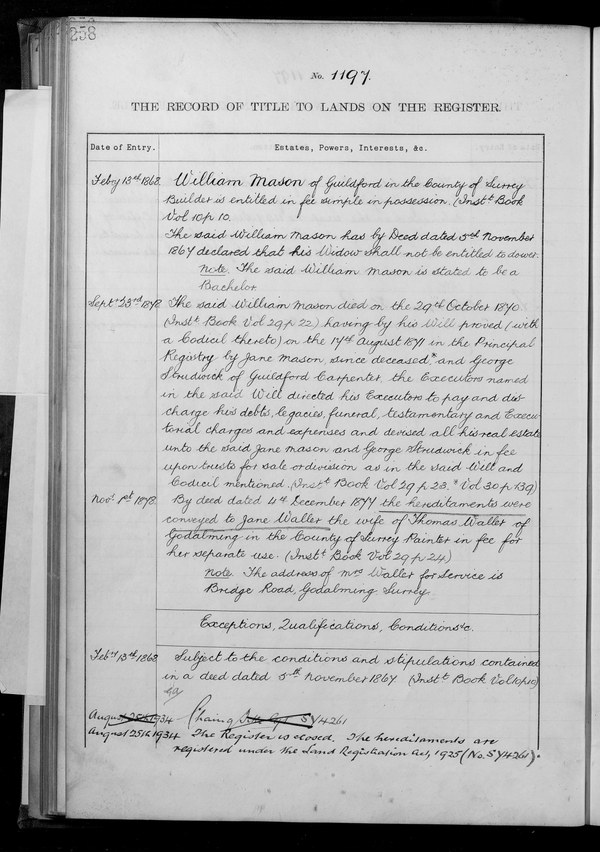 258
No. 1197.
THE RECORD OF TITLE TO LANDS ON THE REGISTER.
Date of Entry. Estates, Powers, Interests, &c.
Febry 13th 1868. William Mason of Guildford in the County of Surrey
Builder is entitled in fee simple in possession. (Instt Book
Vol 10 p 10.
The said William Mason has by Deed dated 5th November
1867 declared that his Widow shall not be entitled to dower.
Note. The said William Mason is stated to be a
Bachelor.
Septr 23rd 1878. The said William Mason died on the 29th October 1870
(Instt Book Vol 29 p 22) having by his Will proved (with
a Codicil thereto) on the 17th August 1871 in the Principal
Registry by Jane Mason, since deceased,* and George
Strudwick of Guildford Carpenter, the Executors named
in the said Will directed his Executors to pay and dis-
charge his debts, legacies, funeral, testamentary and Execu-
torial charges and expenses and devised all his real estate
unto the said Jane Mason and George Strudwick in fee
upon trusts for sale or division as in the said Will and
Codicil mentioned. (Instt Book Vol 29 p 23. * Vol 30 p 139)
Novr 1st 1878. By deed dated 4th December 1877 the hereditaments were
conveyed to Jane Waller the wife of Thomas Waller of
Godalming in the County of Surrey Painter in fee for
her separate use. (Instt Book Vol 29 p 24)
Note. The address of Mrs Waller for Service is
Bridge Road, Godalming Surrey
Exceptions, Qualifications, Conditions &c.
Feby 13th 1868 Subject to the conditions and stipulations contained
in a deed dated 5th November 1867. (Instt Book Vol 10 p 10)
August 25th 1934 SY4261
August 25th 1934 The Register is closed. The hereditaments are
registered under the Land Registration Act, 1925 (No. SY4261).